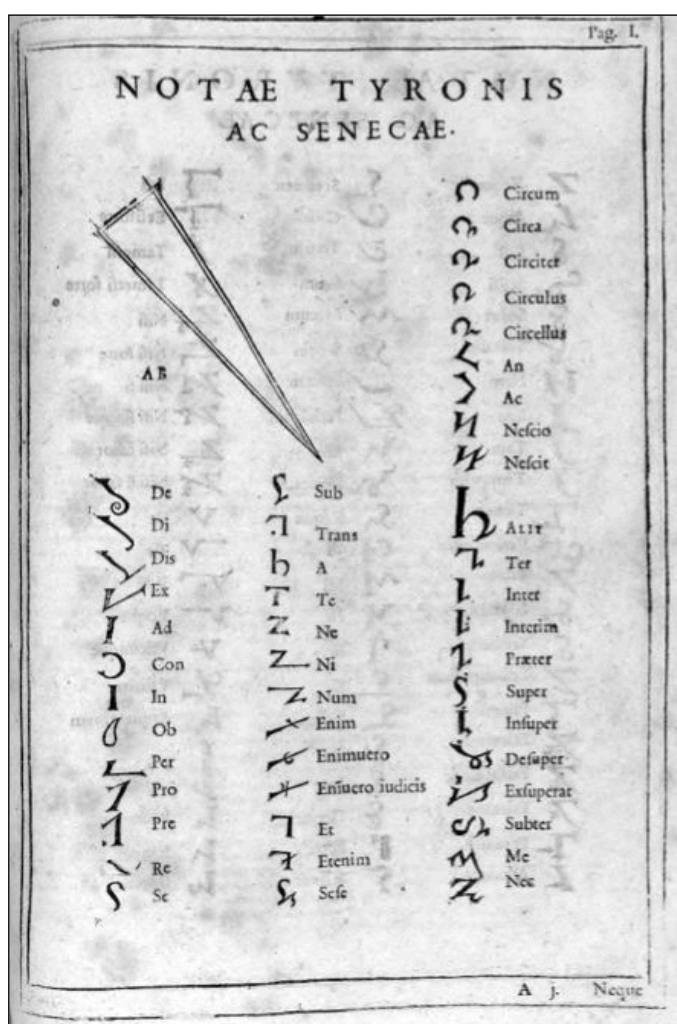 Pag. I.
NOTAE TYRONIS
AC SENECAE.
AB
De
Di
Dis
Ex
Ad
Con
In
Ob
Per
Pro
Pre
Re
Se
Sub
Trans
A
Te
Ne
Ni
Num
Enim
Enimuero
Enĩuero iudicis
Et
Etenim
Sese
Circum
Circa
Circiter
Circulus
Circellus
An
Ac
Neſcio
Neſcit
ALIT
Ter
Inter
Interim
Præter
Super
Inſuper
Deſuper
Exſuperat
Subter
Me
Nec
A j. Neque